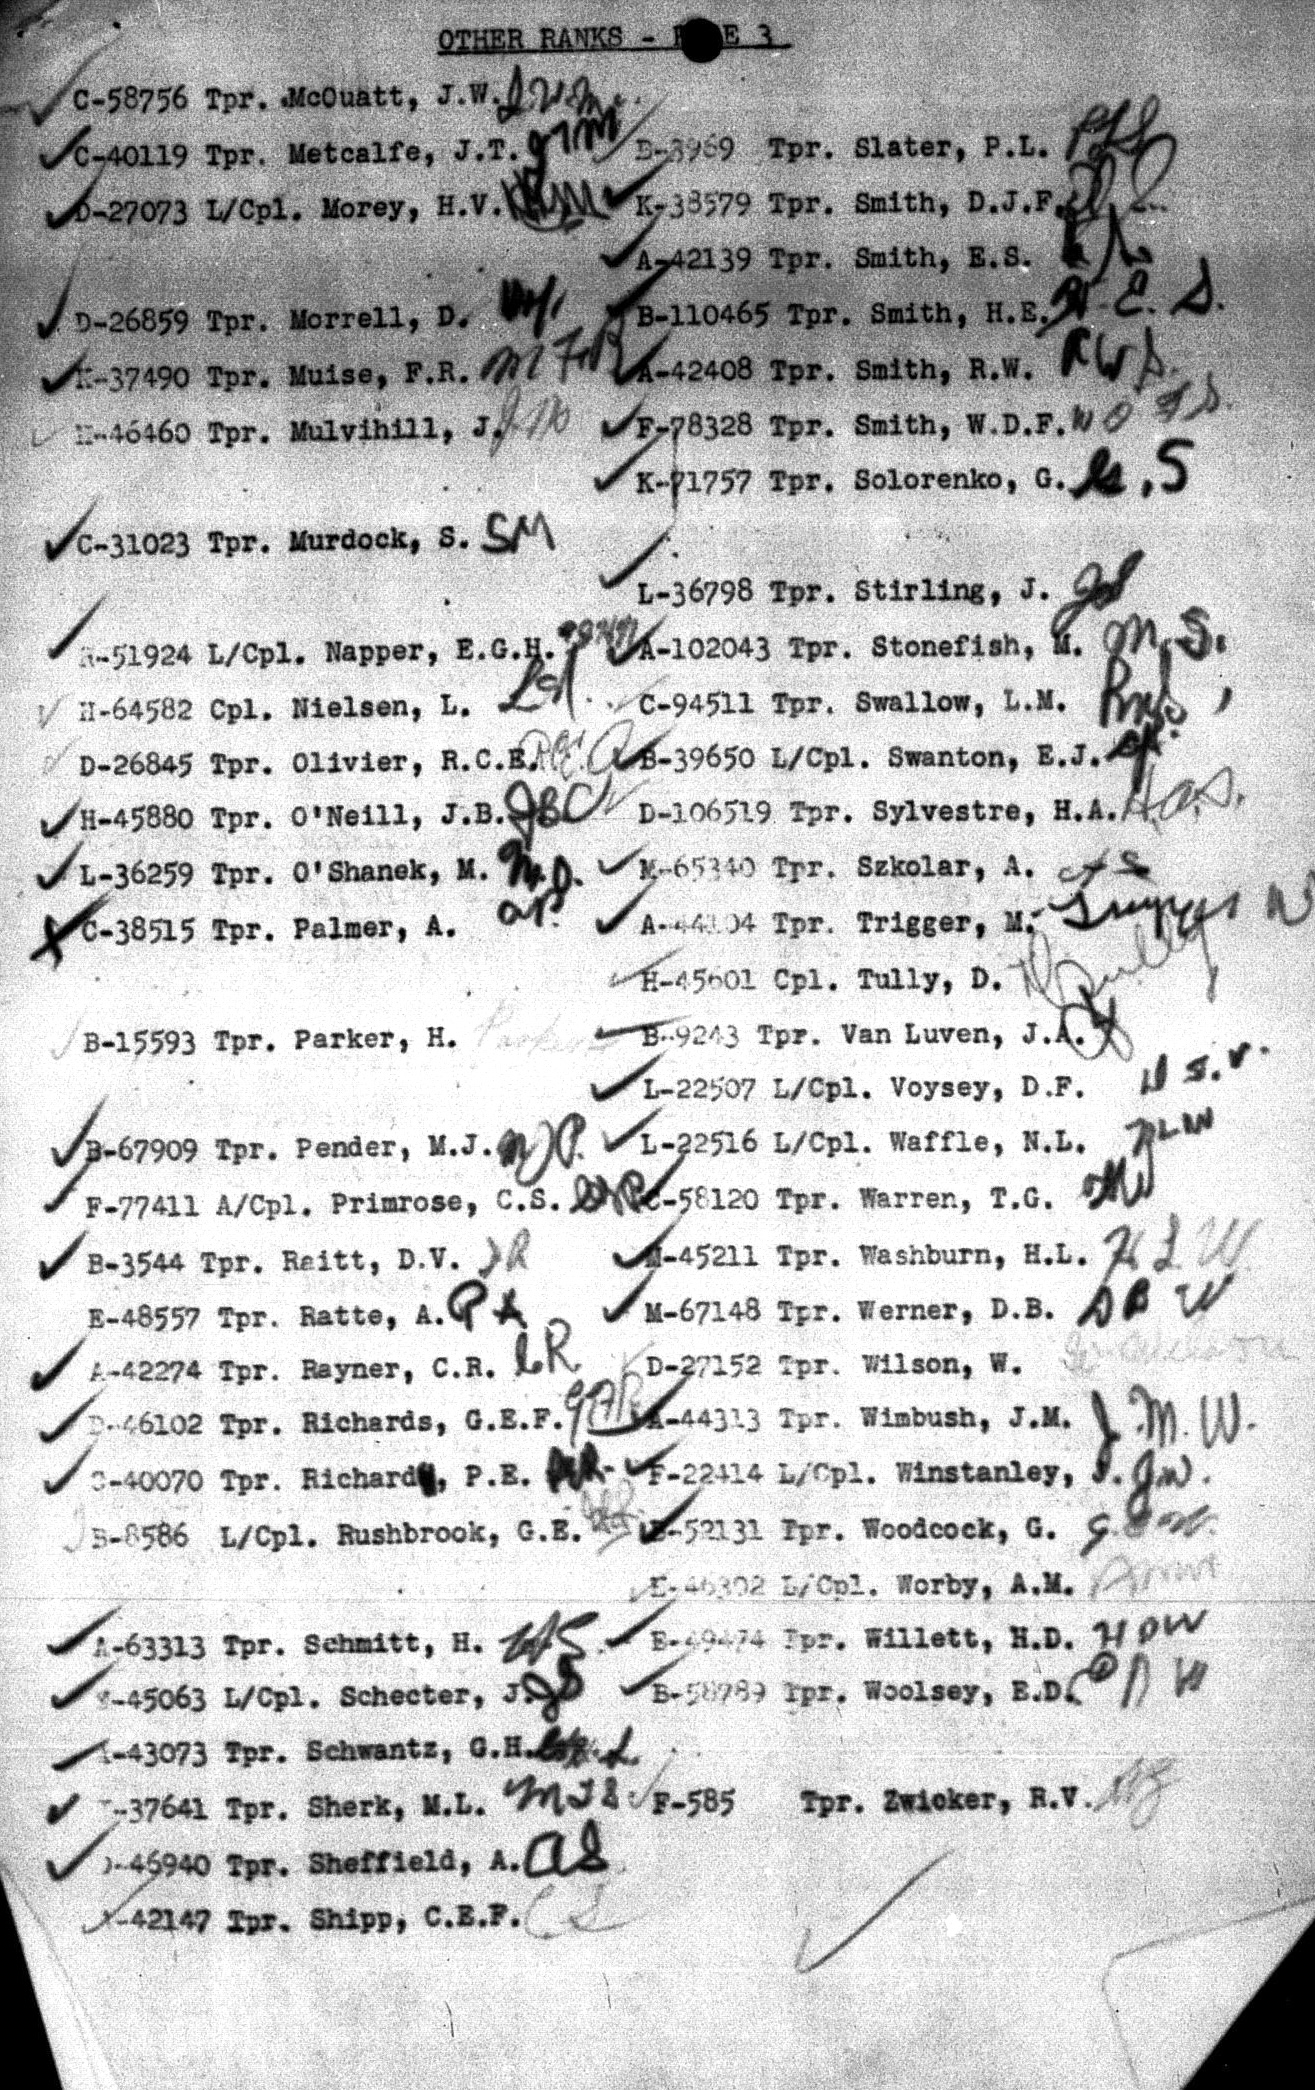 OTHER RANKS - E 3
C-58756 Tpr. McOuatt, J.W.
C-40119 Tpr. Metcalfe, J.T. JTM
D-27073 L/Cpl. Morey, H.V.
D-26859 Tpr. Morrell, D.
K-37490 Tpr. Muise, F.R.
-46460 Tpr. Mulvihill, J.
C-31023 Tpr. Murdock, S. SM
-51924 L/Cpl. Napper, E.G.H.
H-64582 Cpl. Nielsen, L.
D-26845 Tpr. Olivier, R.C.E.
H-45880 Tpr. O'Neill, J.B. JBO
L-36259 Tpr. O'Shanek, M. M.O.
C-38515 Tpr. Palmer, A. AP.
B-15593 Tpr. Parker, H. Parker
B-67909 Tpr. Pender, M.J. MJP.
F-77411 A/Cpl. Primrose, C.S.
B-3544 Tpr. Raitt, D.V.
E-48557 Tpr. Ratte, A.
A-42274 Tpr. Rayner, C.R. CR
-46102 Tpr. Richards, G.E.F.
-40070 Tpr. Richard, P.E.
B-8586 L/Cpl. Rushbrook, G.E.
A-63313 Tpr. Schmitt, H.
-45063 L/Cpl. Schecter, J. JS
-43073 Tpr. Schwantz, G.H.
-37641 Tpr. Sherk, M.L. MLS
-46940 Tpr. Sheffield, A. AS
-42147 Tpr. Shipp, C.E.F. CS
B-3969 Tpr. Slater, P.L. PLS
K-38579 Tpr. Smith, D.J.F.
A-42139 Tpr. Smith, E.S.
B-110465 Tpr. Smith, H.E. H.E.S.
A-42408 Tpr. Smith, R.W. RWS.
F-78328 Tpr. Smith, W.D.F. WDFS.
K-71757 Tpr. Solorenko, G. G.S
L-36798 Tpr. Stirling, J. JS
A-102043 Tpr. Stonefish, M. M.S.
C-94511 Tpr. Swallow, L.M.
B-39650 L/Cpl. Swanton, E.J.
D-106519 Tpr. Sylvestre, H.A. H.A.S.
M-65340 Tpr. Szkolar, A. AS
A-44104 Tpr. Trigger, M. Trigger M
H-45601 Cpl. Tully, D. D Tully
B-9243 Tpr. Van Luven, J.A.
L-22507 L/Cpl. Voysey, D.F.
L-22516 L/Cpl. Waffle, N.L. NLW
C-58120 Tpr. Warren, T.G.
M-45211 Tpr. Washburn, H.L. HLW
M-67148 Tpr. Werner, D.B. DBW
D-27152 Tpr. Wilson, W.
A-44313 Tpr. Wimbush, J.M. J.M.W.
F-22414 L/Cpl. Winstanley, J. JW.
B-52131 Tpr. Woodcock, G.
E-46302 L/Cpl. Worby, A.M. AMW
E-49474 Tpr. Willett, H.D. HDW
B-58789 Tpr. Woolsey, E.D. EDW
F-585 Tpr. Zwicker, R.V.